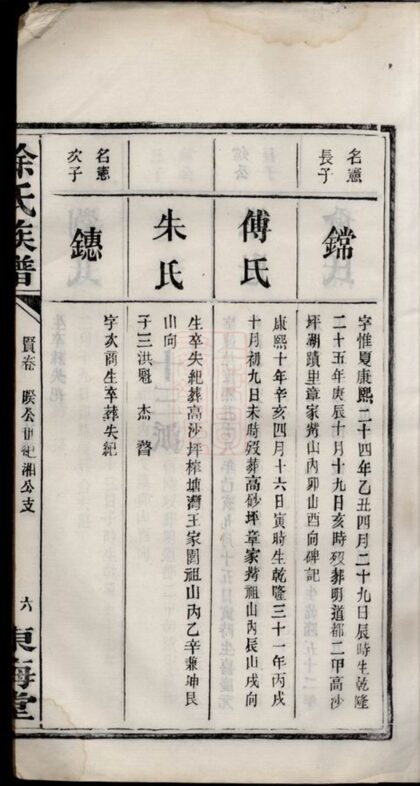 名憲長子
鏛
字惟夏康熙二十四年乙丑四月二十九日辰時生乾隆
二十五年庚辰十月十九日亥時歿葬明道都二甲高沙
坪胡蹟里章家嵜山內卯山酉向碑記
傅氏
康熙十年辛亥四月十六日寅時生乾隆三十一年丙戌
十月初九日未時歿葬高砂坪章家嵜祖山內辰山戌向
朱氏
生卒失紀葬高沙坪榨塘灣王家園祖山內乙辛兼坤艮
山向
子三洪魁 杰
名憲次子
鏸
字次商生卒葬失紀
徐氏族譜
賢卷
公世紀湘公支
六
東海堂